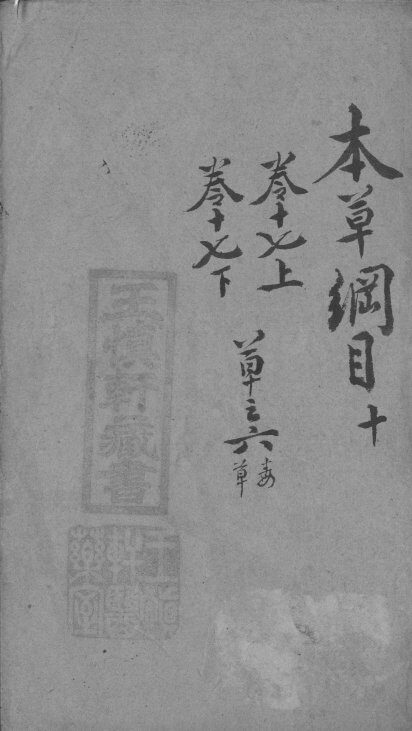 本草綱目十
卷十七上
卷十七下
草之六 毒草
王慎軒藏書